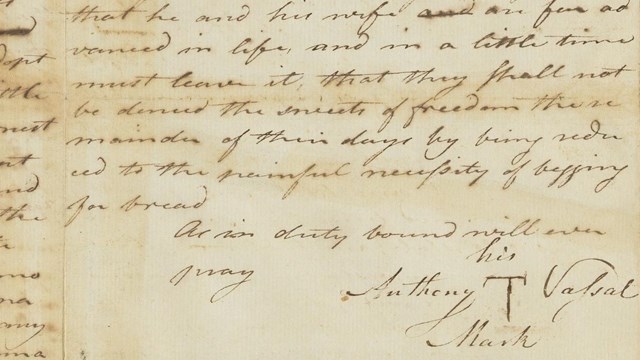 that he and his wife and are far ad
vanced in life, and in a little time
must leave it, that they shall not
be denied the sweets of freedom the re
mainder of their days by being redu
ced to the painful necessity of begging
for bread
As in duty bound will ever
pray
his
Anthony T Vassal
Mark
opt
nest
nd
the